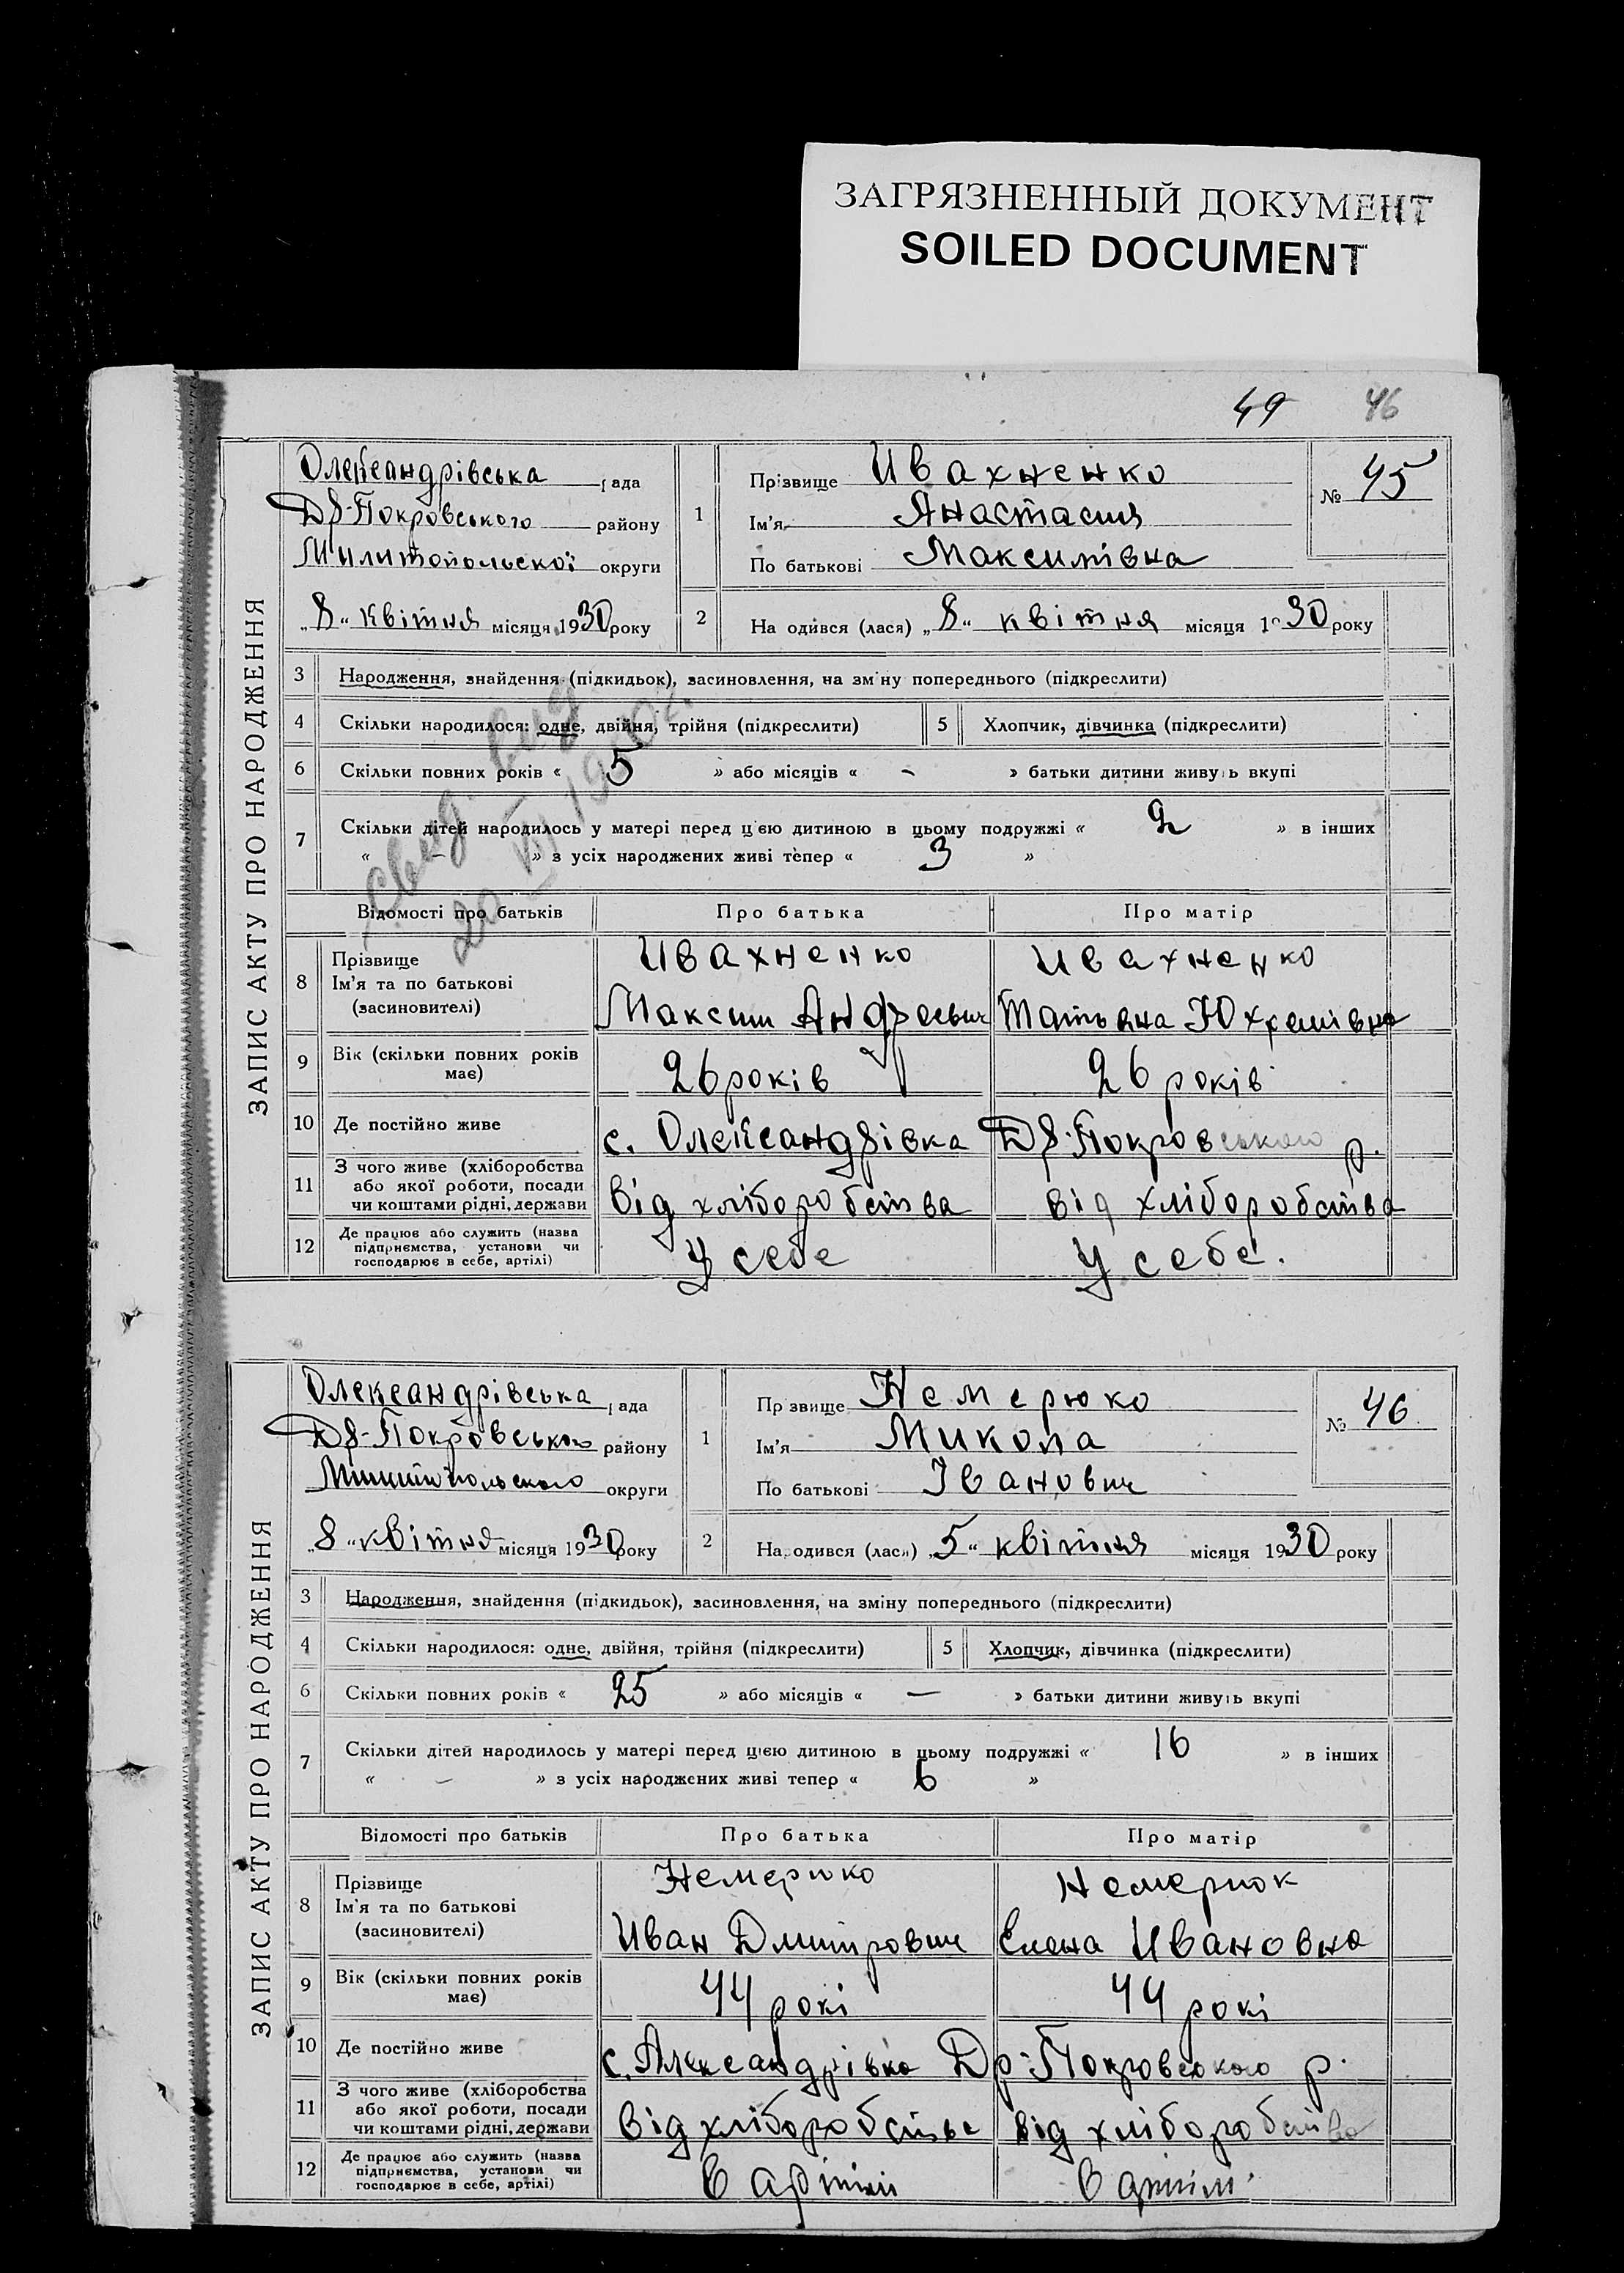 ЗАГРЯЗНЕННЫЙ ДОКУМЕНТ
SOILED DOCUMENT
49 46
ЗАПИС АКТУ ПРО НАРОДЖЕННЯ
Олександрівська рада
Др-Покровського району
Милитопольскої округи
„8“ квітня місяця 1930 року
1
Прізвище Ивахненко
Ім'я Анастасия
По батькові Максимівна
№ 45
2 На одився (лася) „8“ квітня місяця 1930 року
3 Народження, знайдення (підкидьок), засиновлення, на зміну попереднього (підкреслити)
4 Скільки народилося: одне, двійня, трійня (підкреслити) 5 Хлопчик, дівчинка (підкреслити)
6 Скільки повних років « 5 » або місяців « – » батьки дитини живуть вкупі
7 Скільки дітей народилось у матері перед цією дитиною в цьому подружжі « 2 » в інших
« – » з усіх народжених живі тепер « 3 »
Відомості про батьків Про батька Про матір
8 Прізвище
Ім'я та по батькові
(засиновителі)
Ивахненко Ивахненко
Максим Андреевич Татьяна Юхремівна
9 Вік (скільки повних років має) 26 років 26 років
10 Де постійно живе с. Олександрівка Др-Покровського р.
11 З чого живе (хліборобства
або якої роботи, посади
чи коштами рідні, держави
від хліборобства від хліборобства
12 Де працює або служить (назва
підприємства, установи чи
господарює в себе, артілі)
У себе У себе.
ЗАПИС АКТУ ПРО НАРОДЖЕННЯ
Олександрівська рада
Др-Покровського району
округи
„8“ квітня місяця 1930 року
1
Прізвище Немерюко
Ім'я Микола
По батькові Іванович
№ 46
2 На одився (лася) „5“ квітня місяця 1930 року
3 Народження, знайдення (підкидьок), засиновлення, на зміну попереднього (підкреслити)
4 Скільки народилося: одне, двійня, трійня (підкреслити) 5 Хлопчик, дівчинка (підкреслити)
6 Скільки повних років « 25 » або місяців « — » батьки дитини живуть вкупі
7 Скільки дітей народилось у матері перед цією дитиною в цьому подружжі « 16 » в інших
« – » з усіх народжених живі тепер « 6 »
Відомості про батьків Про батька Про матір
8 Прізвище
Ім'я та по батькові
(засиновителі)
Немерюко Немерюк
Иван Дмитрович Елена Ивановна
9 Вік (скільки повних років має) 44 рокі 44 рокі
10 Де постійно живе с. Александрівка Др-Покровського р.
11 З чого живе (хліборобства
або якої роботи, посади
чи коштами рідні, держави
від хліборобства від хліборобства
12 Де працює або служить (назва
підприємства, установи чи
господарює в себе, артілі)
в артілі в артілі